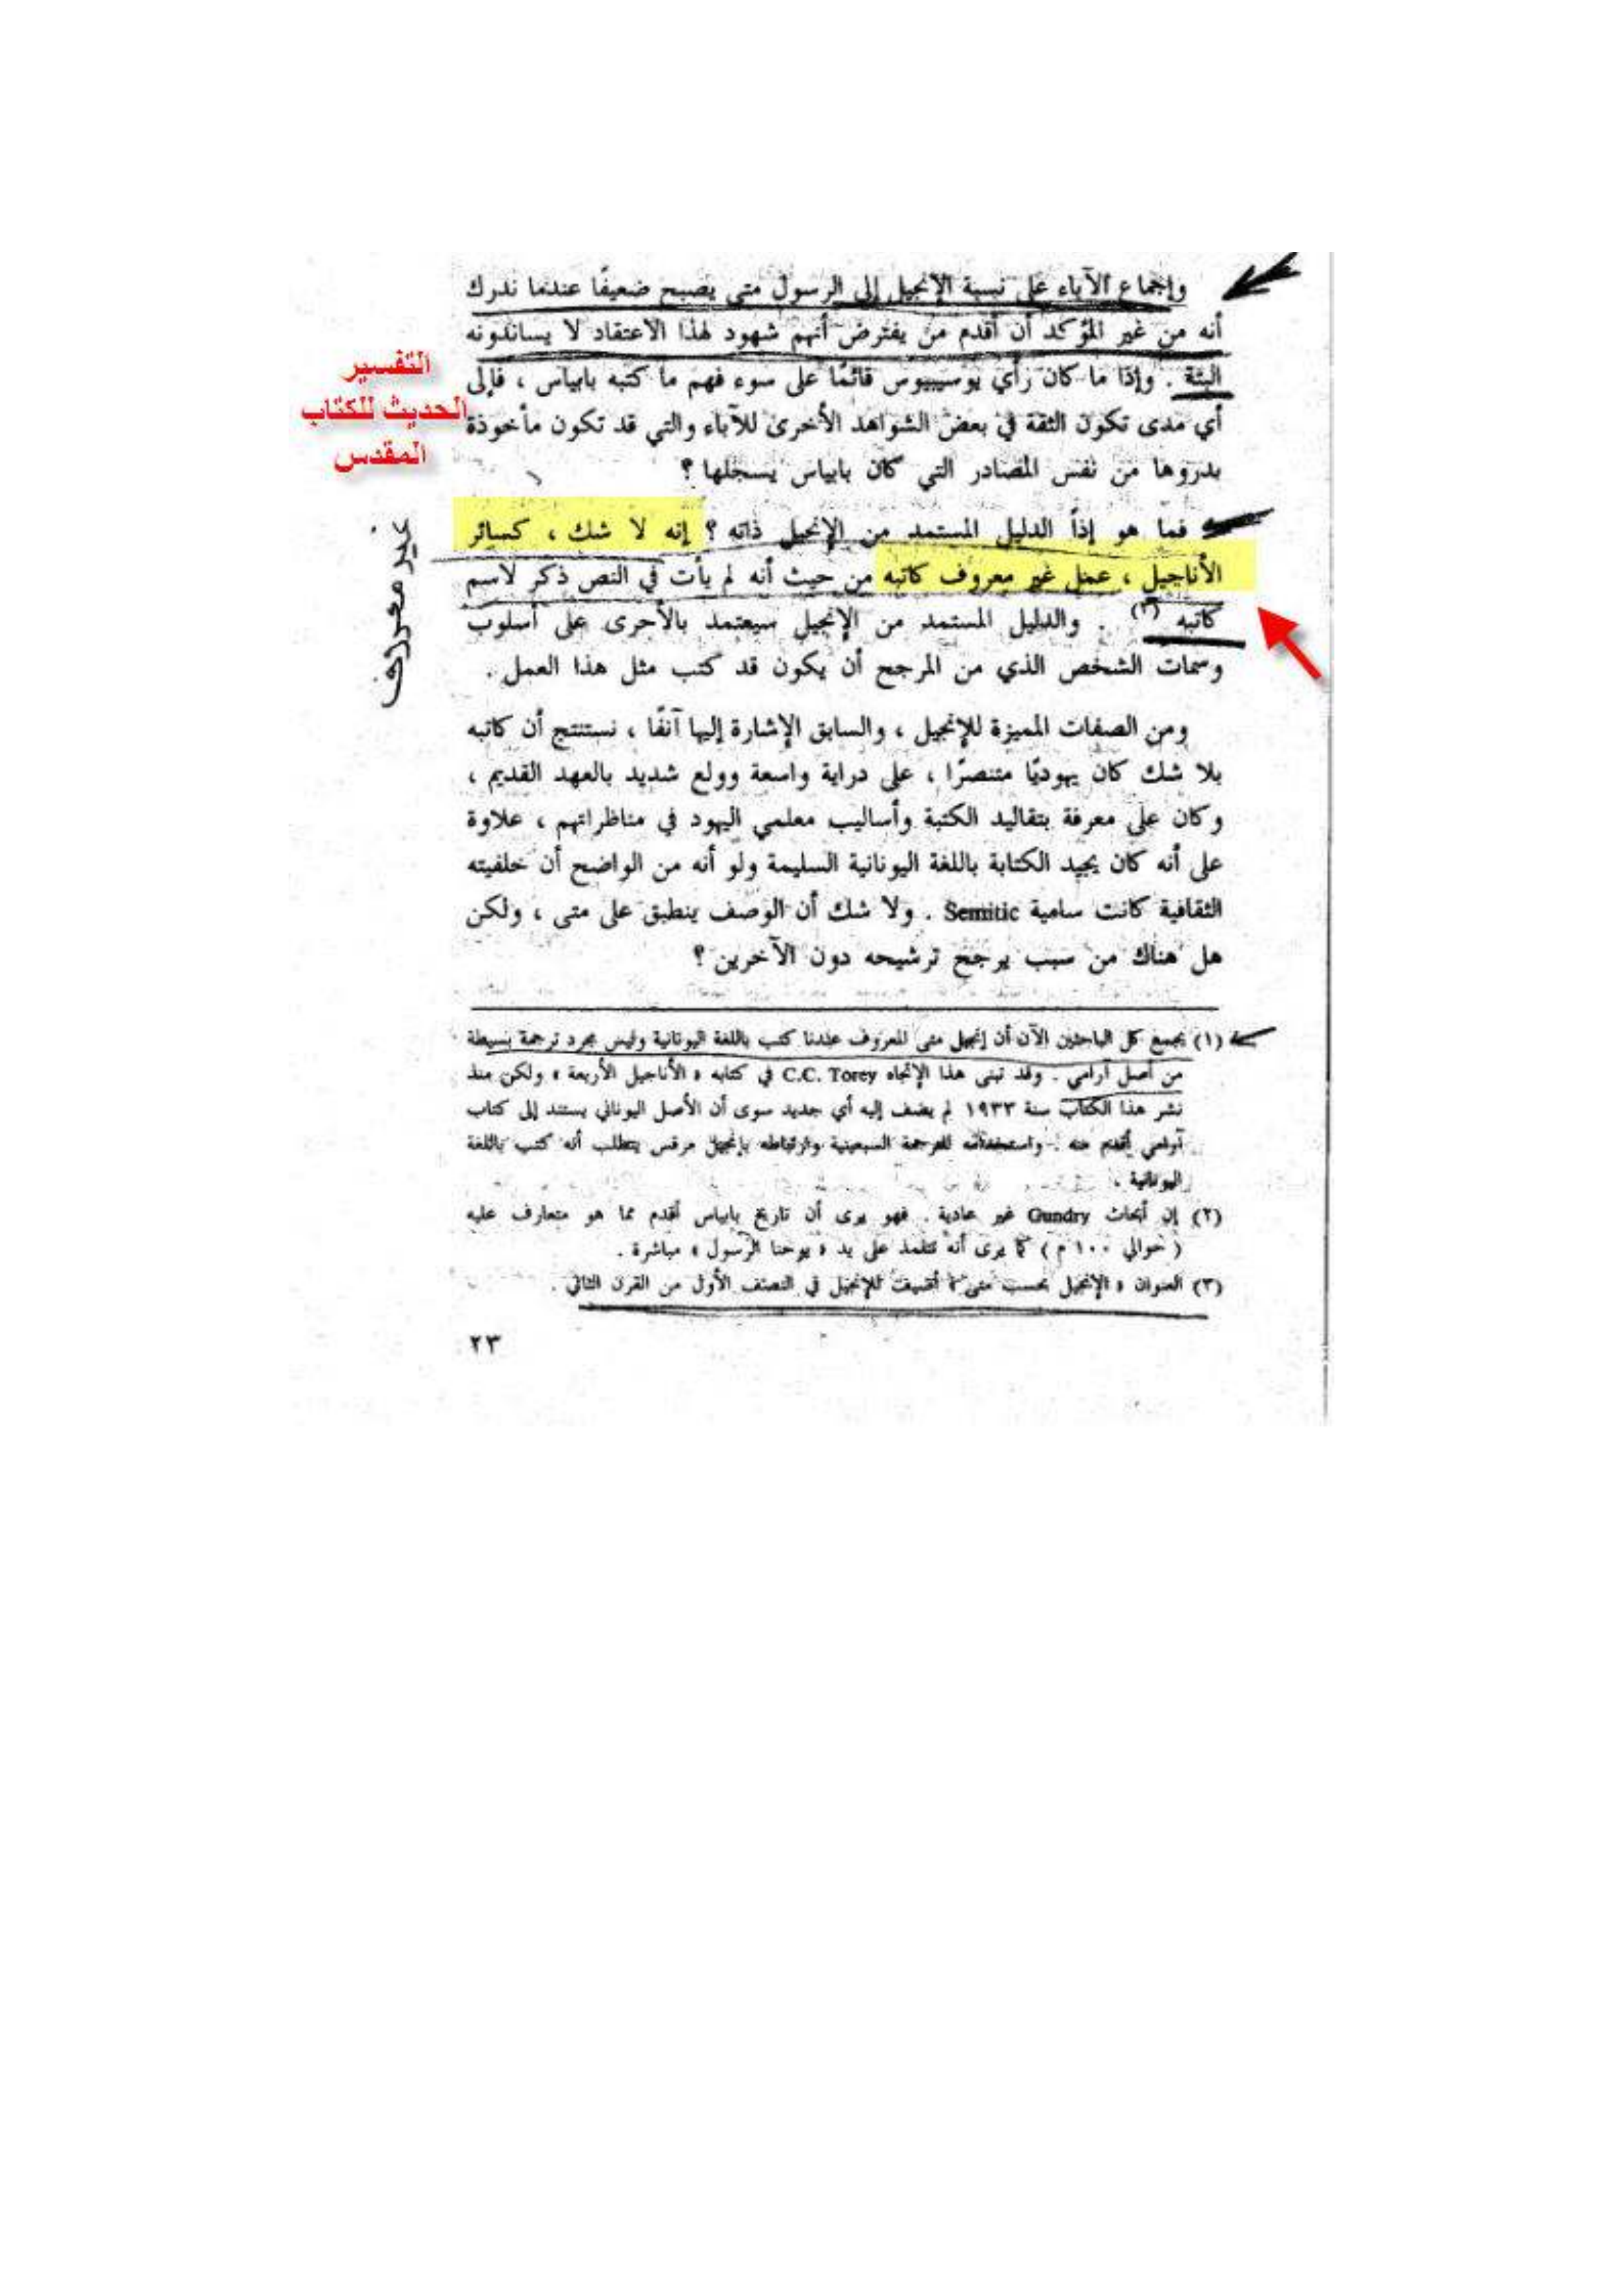 وإجماع الآباء على نسبة الإنجيل إلى الرسول متى يصبح ضعيفًا عندما ندرك
أنه من غير المؤكد أن أقدم من يفترض أنهم شهود لهذا الاعتقاد لا يساندونه
البتة . وإذا ما كان رأي يوسيبيوس قائمًا على سوء فهم ما كتبه بابياس ، فإلى
أي مدى تكون الثقة في بعض الشواهد الأخرى للآباء والتي قد تكون مأخوذة
بدورها من نفس المصادر التي كان بابياس يسجلها ؟
التفسير
الحديث للكتاب
المقدس
غير معروف
فما هو إذاً الدليل المستمد من الإنجيل ذاته ؟ إنه لا شك ، كسائر
الأناجيل ، عمل غير معروف كاتبه من حيث أنه لم يأت في النص ذكر لاسم
كاتبه (٣) . والدليل المستمد من الإنجيل سيعتمد بالأحرى على أسلوب
وسمات الشخص الذي من المرجح أن يكون قد كتب مثل هذا العمل .
ومن الصفات المميزة للإنجيل ، والسابق الإشارة إليها آنفًا ، نستنتج أن كاتبه
بلا شك كان يهوديًا متنصرًا ، على دراية واسعة وولع شديد بالعهد القديم ،
وكان على معرفة بتقاليد الكتبة وأساليب معلمي اليهود في مناظراتهم ، علاوة
على أنه كان يجيد الكتابة باللغة اليونانية السليمة ولو أنه من الواضح أن خلفيته
الثقافية كانت سامية Semitic . ولا شك أن الوصف ينطبق على متى ، ولكن
هل هناك من سبب يرجح ترشيحه دون الآخرين ؟
(١) يجمع كل الباحثين الآن أن إنجيل متى المعروف عندنا كتب باللغة اليونانية وليس مجرد ترجمة بسيطة
من أصل آرامي . وقد تبنى هذا الإتجاه C.C. Torey في كتابه « الأناجيل الأربعة » ولكن منذ
نشر هذا الكتاب سنة ١٩٣٣ لم يضف إليه أي جديد سوى أن الأصل اليوناني يستند إلى كتاب
آرامي أقدم منه . واستخدامه للترجمة السبعينية وارتباطه بإنجيل مرقس يتطلب أنه كتب باللغة
اليونانية .
(٢) إن أبحاث Gundry غير عادية . فهو يرى أن تاريخ بابياس أقدم مما هو متعارف عليه
( حوالي ١٠٠ م ) كما يرى أنه تتلمذ على يد « يوحنا الرسول » مباشرة .
(٣) العنوان « الإنجيل بحسب متى » أضيفت للإنجيل في النصف الأول من القرن الثاني .
٢٣